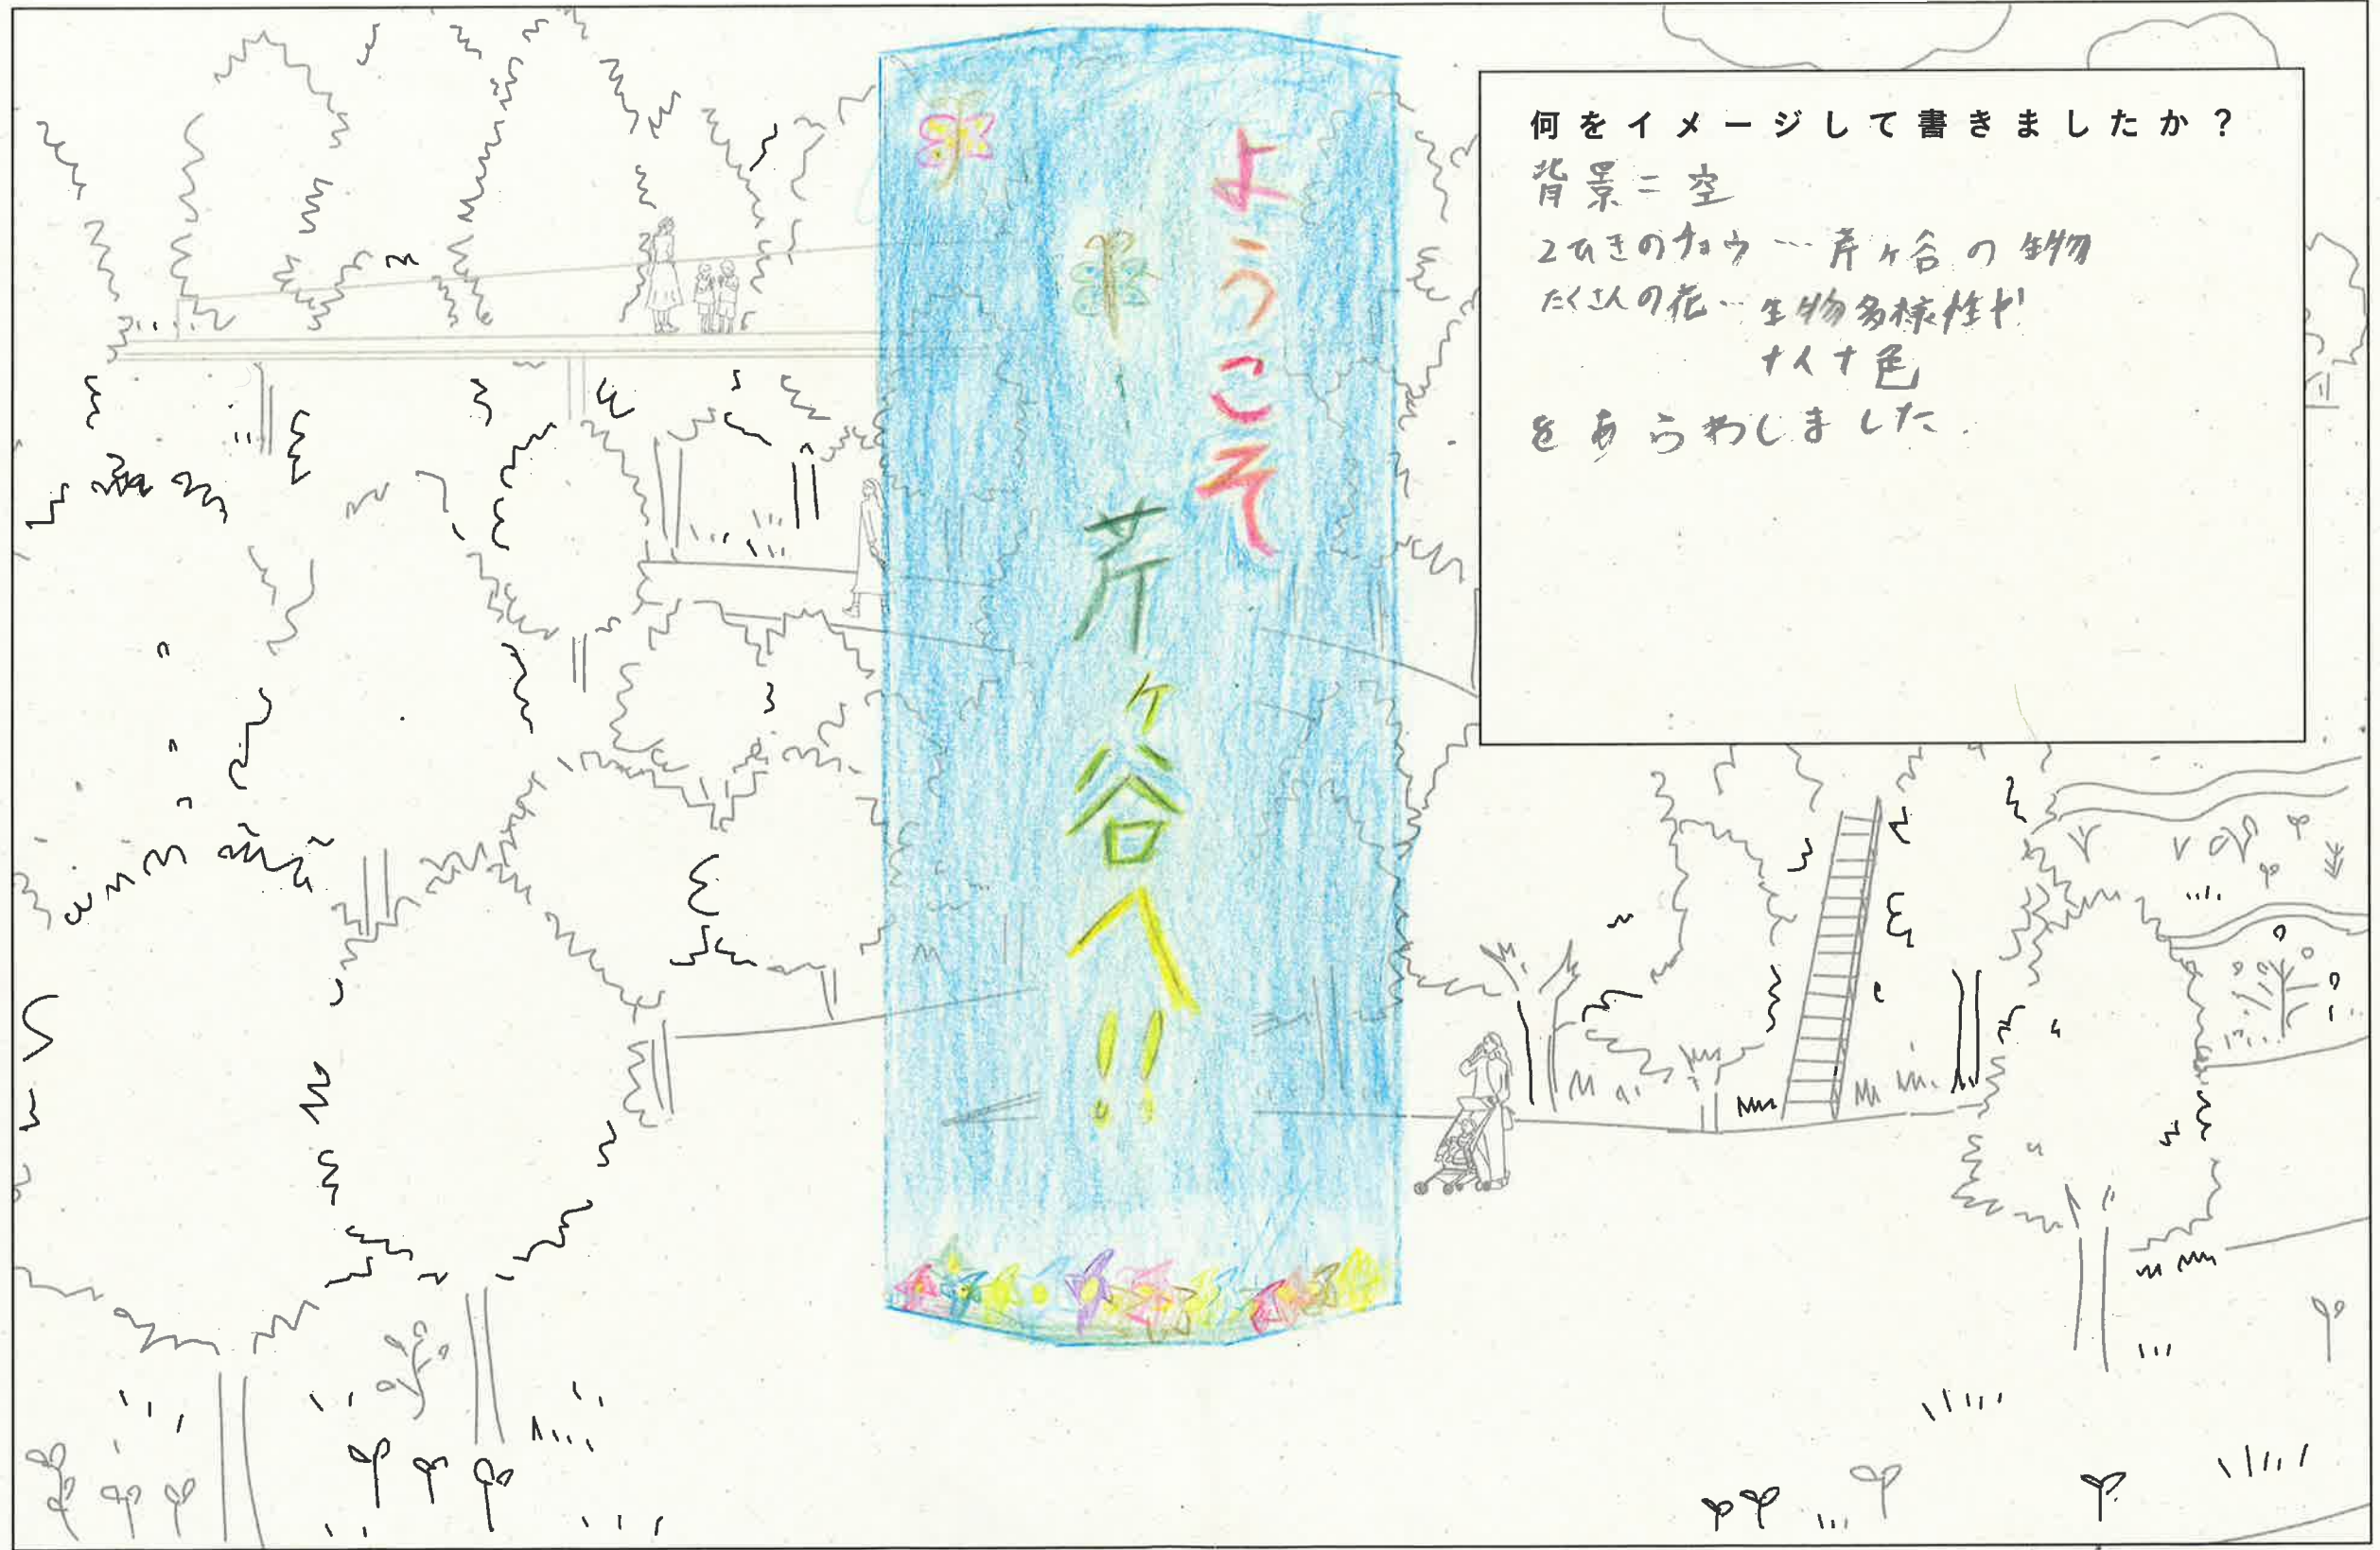 ようこそ
芹ヶ谷へ!!
何をイメージして書きましたか?
背景=空
2ひきのチョウ…芹ヶ谷の生物
たくさんの花…生物多様性や
十人十色
をあらわしました.